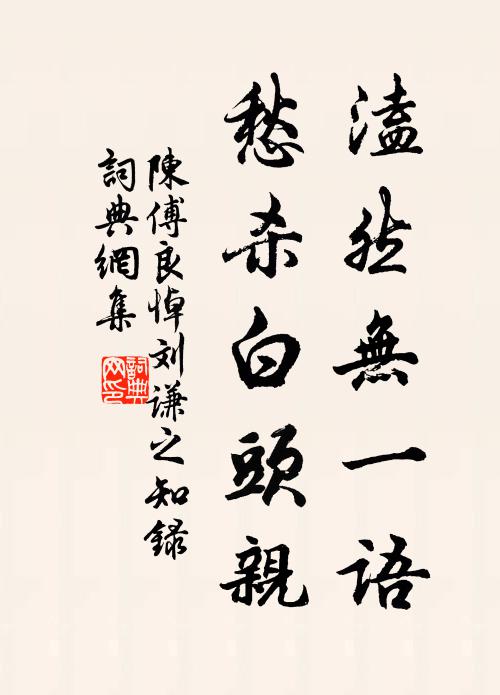 溘然無一语
愁杀白頭親
陳傅良悼刘谦之知録
詞典網集
詞典网印